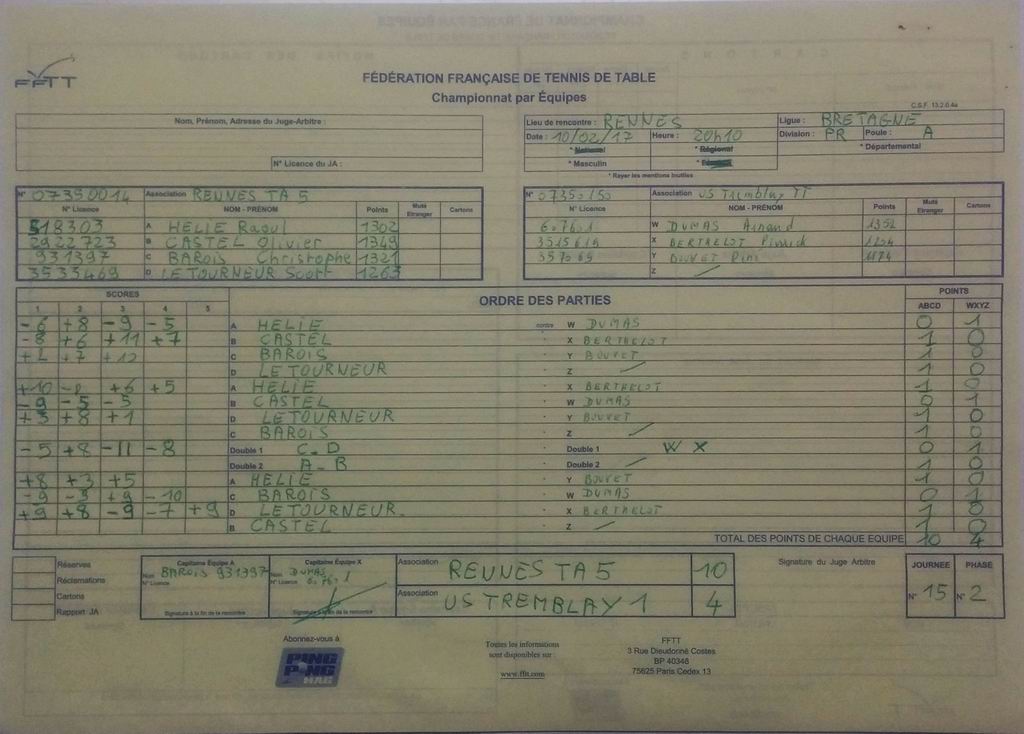 FFTT
FÉDÉRATION FRANÇAISE DE TENNIS DE TABLE
Championnat par Équipes
C.S.F. 13.2.0.4a
Nom, Prénom, Adresse du Juge-Arbitre :
N° Licence du JA :
Lieu de rencontre : RENNES Ligue : BRETAGNE
Date : 10/02/17 Heure : 20h10 Division : PR Poule : A
* National * Régional * Départemental
* Masculin
* Rayer les mentions inutiles
N° 07350014 Association RENNES TA 5
N° Licence NOM - PRÉNOM Points Muté Etranger Cartons
518303 A HELIE Raoul 1302
2922723 B CASTEL Olivier 1349
931397 C BAROIS Christophe 1321
3535469 D LETOURNEUR Scott 1263
N° 07350150 Association US Tremblay TT
N° Licence NOM - PRÉNOM Points Muté Etranger Cartons
W DUMAS Arnaud 1352
X BERTHELOT
Y BOUVET 1174
Z
SCORES ORDRE DES PARTIES POINTS
1 2 3 4 5 ABCD WXYZ
-6 +8 -9 -5 A HELIE contre W DUMAS 0 1
-8 +6 +11 +7 B CASTEL X BERTHELOT 1 0
+7 +12 C BAROIS Y BOUVET 1 0
D LETOURNEUR Z 1 0
+10 +6 +5 A HELIE X BERTHELOT 1 0
-9 -5 -5 B CASTEL W DUMAS 0 1
+3 +8 +1 D LETOURNEUR Y BOUVET 1 0
C BAROIS Z 1 0
-5 +8 -11 -8 Double 1 C-D Double 1 W X 0 1
Double 2 A-B Double 2 1 0
+8 +3 +5 A HELIE Y BOUVET 1 0
-9 -3 +9 -10 C BAROIS W DUMAS 0 1
+9 +8 -9 -7 +9 D LETOURNEUR X BERTHELOT 1 0
B CASTEL Z 1 0
TOTAL DES POINTS DE CHAQUE EQUIPE 10 4
Réserves
Réclamations
Cartons
Rapport JA
Capitaine Équipe A
Nom BAROIS 931397
N° Licence
Signature à la fin de la rencontre
Capitaine Équipe X
Nom DUMAS
N° Licence
Signature à la fin de la rencontre
Association RENNES TA 5 10
Association US TREMBLAY 1 4
Signature du Juge Arbitre
JOURNEE PHASE
N° 15 N° 2
Abonnez-vous à
PING PONG MAG
Toutes les informations
sont disponibles sur :
www.fftt.com
FFTT
3 Rue Dieudonné Costes
BP 40348
75625 Paris Cedex 13